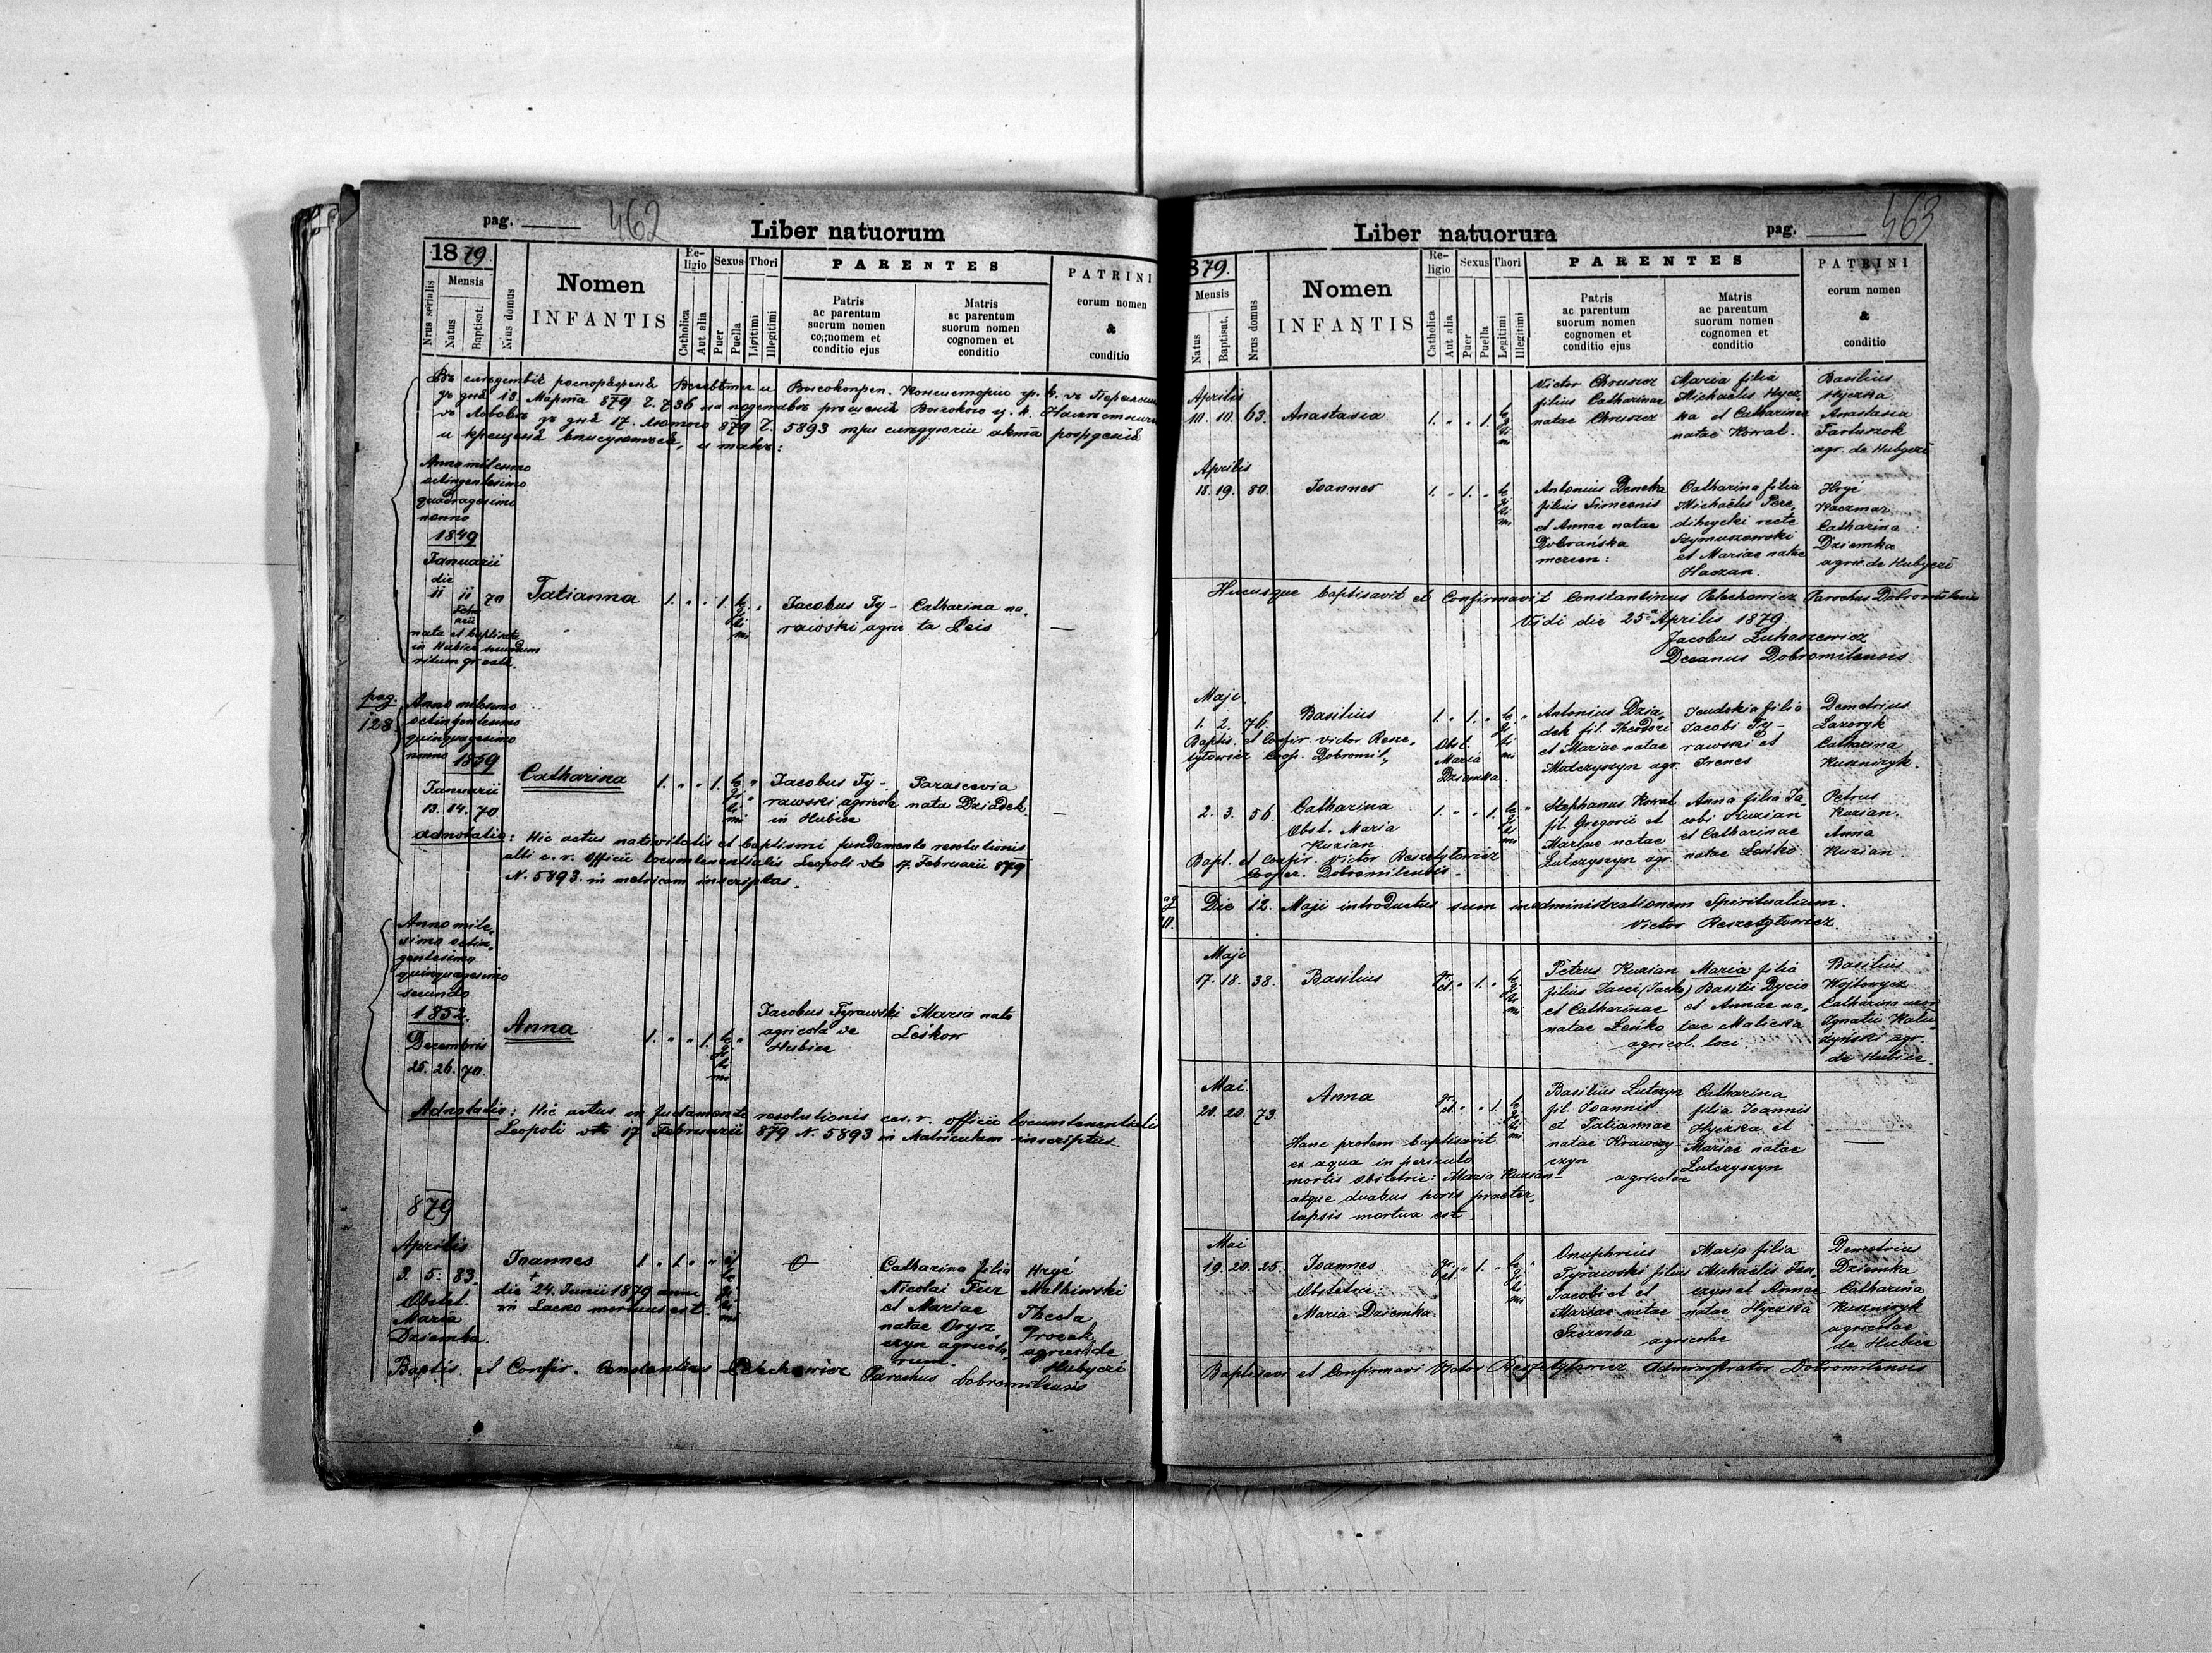 pag. 462
Liber natuorum
1879.
Nrus serialis
Mensis
Natus
Baptisat.
Nrus domus
Nomen
INFANTIS
Religio
Catholica
Aut alia
Sexus
Puer
Puella
Thori
Legitimi
Illegitimi
PARENTES
Patris
ac parentum
suorum nomen
cognomem et
conditio ejus
Matris
ac parentum
suorum nomen
cognomen et
conditio
PATRINI
eorum nomen
&
conditio
13. Марта 879 Ч. 736
17. Лютого 879 Ч. 5893 при
и
Anno milesimo
octingentesimo
quadragesimo
nonno
1849
Januarii
die
11 11 70
Februarii
nata et baptisata
in Hubice secundum
ritum gr. cath.
Tatianna
1. " " 1. legitimi "
Jacobus Ty-
rawski agric
Catharina na-
ta Peis
—
pag.
128
Anno milesimo
octingentesimo
quinquagesimo
nonno 1859
Januarii
13. 14. 70
Catharina
1. " " 1. legitimi "
Jacobus Ty-
rawski agricola
in Hubice
Parascevia
nata Dziadek
—
adnotatio: Hic actus nativitatis et baptismi fundamento resolutionis
alti c. r. Officii locumtenentialis Leopoli dto 17. Februarii 879
N. 5893. in metricam inscriptus.
Anno mile-
simo octin-
gentesimo
quinquagesimo
secundo
1852.
Decembris
25. 26. 70.
Anna
1. " " 1. legitimi "
Jacobus Tyrawski
agricola de
Hubice
Maria nata
Leśkow
Adnotatio: Hic actus in fudamento resolutionis ces. r. officii locumtenentiali
Leopoli dto 17 Februarii 879 N. 5893 in Matriculam inscriptus
879
Aprilis
3. 5. 83.
Obstet.
Maria
Dziemka.
Joannes
die 24. Junii 1879 anni
in Lacko mortuus est.
1. " 1. " "
Catharina filia
Nicolai Fuz
et Mariae
natae Orysz
czyn agricola-
rum.
Hryć
Malkiwski
Thecla
Procak
agricol. de
Hubyczi
Baptis. et Confir. Constantinus Pelechowicz Parochus Dobromilensis
Liber natuorum
pag. 463
879.
Mensis
Natus
Baptisat.
Nrus domus
Nomen
INFANTIS
Religio
Catholica
Aut alia
Sexus
Puer
Puella
Thori
Legitimi
Illegitimi
PARENTES
Patris
ac parentum
suorum nomen
cognomen et
conditio ejus
Matris
ac parentum
suorum nomen
cognomen et
conditio
PATRINI
eorum nomen
&
conditio
Aprilis
10. 10. 63. Anastasia
1. " " 1. legitimi
Victor Chruszcz
filius Catharinae
natae Chruszcz
Maria filia
Michaelis Hycz-
ka et Catharinae
natae Kowal.
Basilius
Hyczka
Anastasia
Fartuszok
agr. de Hubyczi
Aprilis
18. 19. 80. Joannes
1. " 1. " legitimi
Antonius Demka
filius Simeonis
et Annae natae
Dobrańska
mercen:
Catharina filia
Michaëlis Pere-
dihycki recte
Szymuszowski
et Mariae natae
Haczan.
Hryć
Kaczmar
Catharina
Dziemka
agric. de Hubyczi
Hucusque baptisavit et Confirmavit Constantinus Pelechowicz Parochus Dobromilensis
Vidi die 25a Aprilis 1879.
Jacobus Lukaszewicz
Decanus Dobromilensis
Maji
1. 2. 76. Basilius
1. " 1. " legitimi "
Baptis. et Confir. Victor Resze-
tyłowicz Coop. Dobromil.
Obst.
Maria
Dziemka.
Antonius Dzia-
dek fil. Theodori
et Mariae natae
Matczyszyn agr.
Jeudokia filia
Jacobi Ty-
rawski et
Irenes
Demetrius
Lazoryk
Catharina
Kuszniryk.
2. 3. 56. Catharina
1. " " 1. legitimi "
Obst. Maria
Kuzian
Bapt. et Confir. Victor Reszetyłowicz
Cooper. Dobromilensis.
Stephanus Kowal
fil. Gregorii et
Mariae natae
Lutczyszyn agr.
Anna filia Ja-
cobi Kuzian
et Catharinae
natae Leśko.
Petrus
Kuzian.
Anna
Kuzian.
Die 12. Maji introductus sum in administrationem Spiritualium.
Victor Reszetyłowicz.
Maji
17. 18. 38. Basilius
gr. ct. " 1. " legitimi
Petrus Kuzian
filius Jacci (Jacko)
et Catharinae
natae Leśko
Maria filia
Basilii Dycio
et Annae na-
tae Malicka
agricol. loci.
Basilius
Wojtowycz
Catharina uxor
Ignatii Wolu-
żyński agr.
de Hubice.
Mai
20. 20. 73. Anna
gr. ct. " " 1. legitimi
Hanc prolem baptisavit
ex aqua in periculo
mortis obstetric: Maria Kuzian
atque duabus horis praeter-
lapsis mortua est.
Basilius Lutczyn
fil. Joannis
et Tatiannae
natae Krawczy-
czyn
Catharina
filia Joannis
Hyczka et
Mariae natae
Lutczyszyn
agricolae
—
Mai
19. 20. 25. Joannes
gr. ct. " 1. " legitimi "
Obstetric
Maria Dziemka.
Onuphrius
Tyrawski filius
Jacobi et
Mariae natae
Szczerba
Maria filia
Michaëlis Fen-
czyn et Annae
natae Hyczka
agricolae
Demetrius
Dziemka
Catharina
Kuszniryk
agricolae
de Hubice
Baptisavi et Confirmavi Victor Reszetyłowicz Administrator Dobromilensis